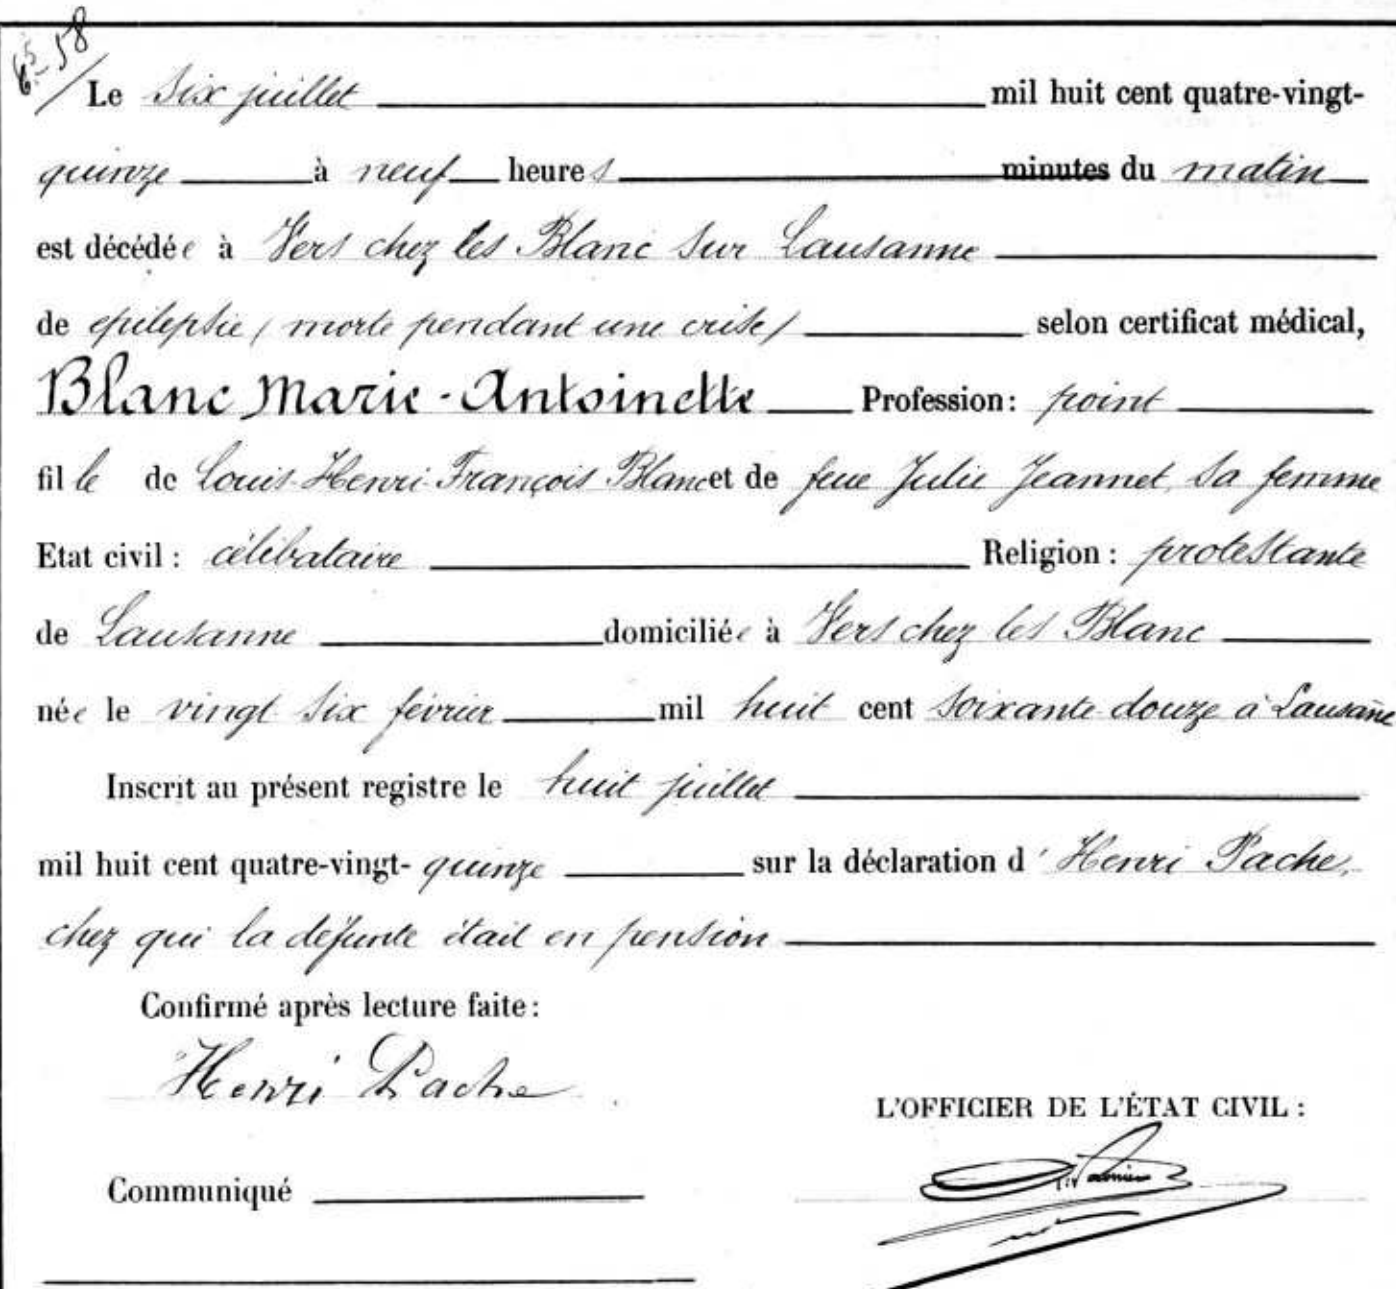 58
Le six juillet mil huit cent quatre-vingt-
quinze à neuf heures minutes du matin
est décédée à Vers chez les Blanc sur Lausanne
de epilepsie (morte pendant une crise) selon certificat médical,
Blanc Marie-Antoinette Profession: point
fille de Louis-Henri-François Blanc et de feue Julie Jeannet, sa femme
Etat civil: célibataire Religion: protestante
de Lausanne domiciliée à Vers chez les Blanc
née le vingt six février mil huit cent soixante-douze à Lausanne
Inscrit au présent registre le huit juillet
mil huit cent quatre-vingt-quinze sur la déclaration d'Henri Pache,
chez qui la défunte était en pension
Confirmé après lecture faite:
Henri Pache
L'OFFICIER DE L'ÉTAT CIVIL:
Communiqué